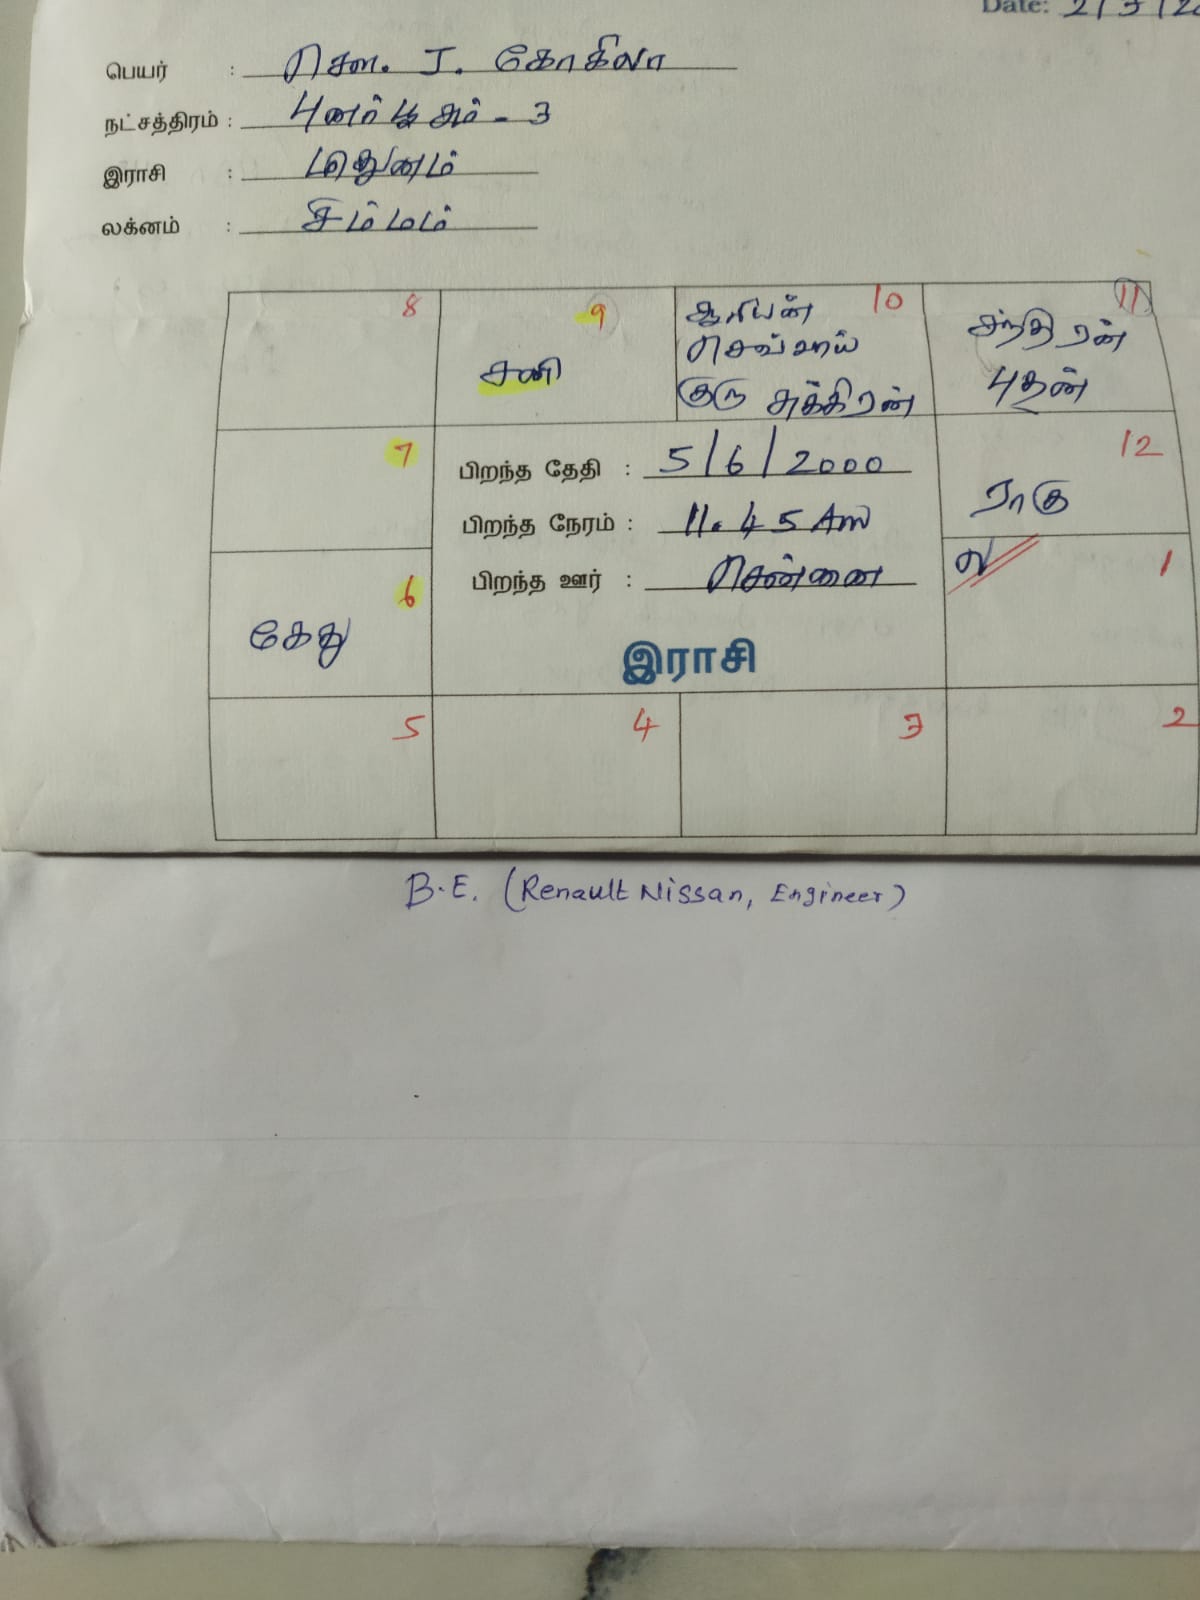 Date: 2/3/20
பெயர் : சௌ. J. கோகிலா
நட்சத்திரம் : புனர்பூசம் - 3
இராசி : மிதுனம்
லக்னம் : சிம்மம்
8
9
சனி
10
சூரியன்
செவ்வாய்
குரு சுக்கிரன்
11
சந்திரன்
புதன்
7
பிறந்த தேதி : 5/6/2000
பிறந்த நேரம் : 11.45 Am
பிறந்த ஊர் : சென்னை
12
ராகு
6
கேது
இராசி
ல
1
5
4
3
2
B.E. (Renault Nissan, Engineer)